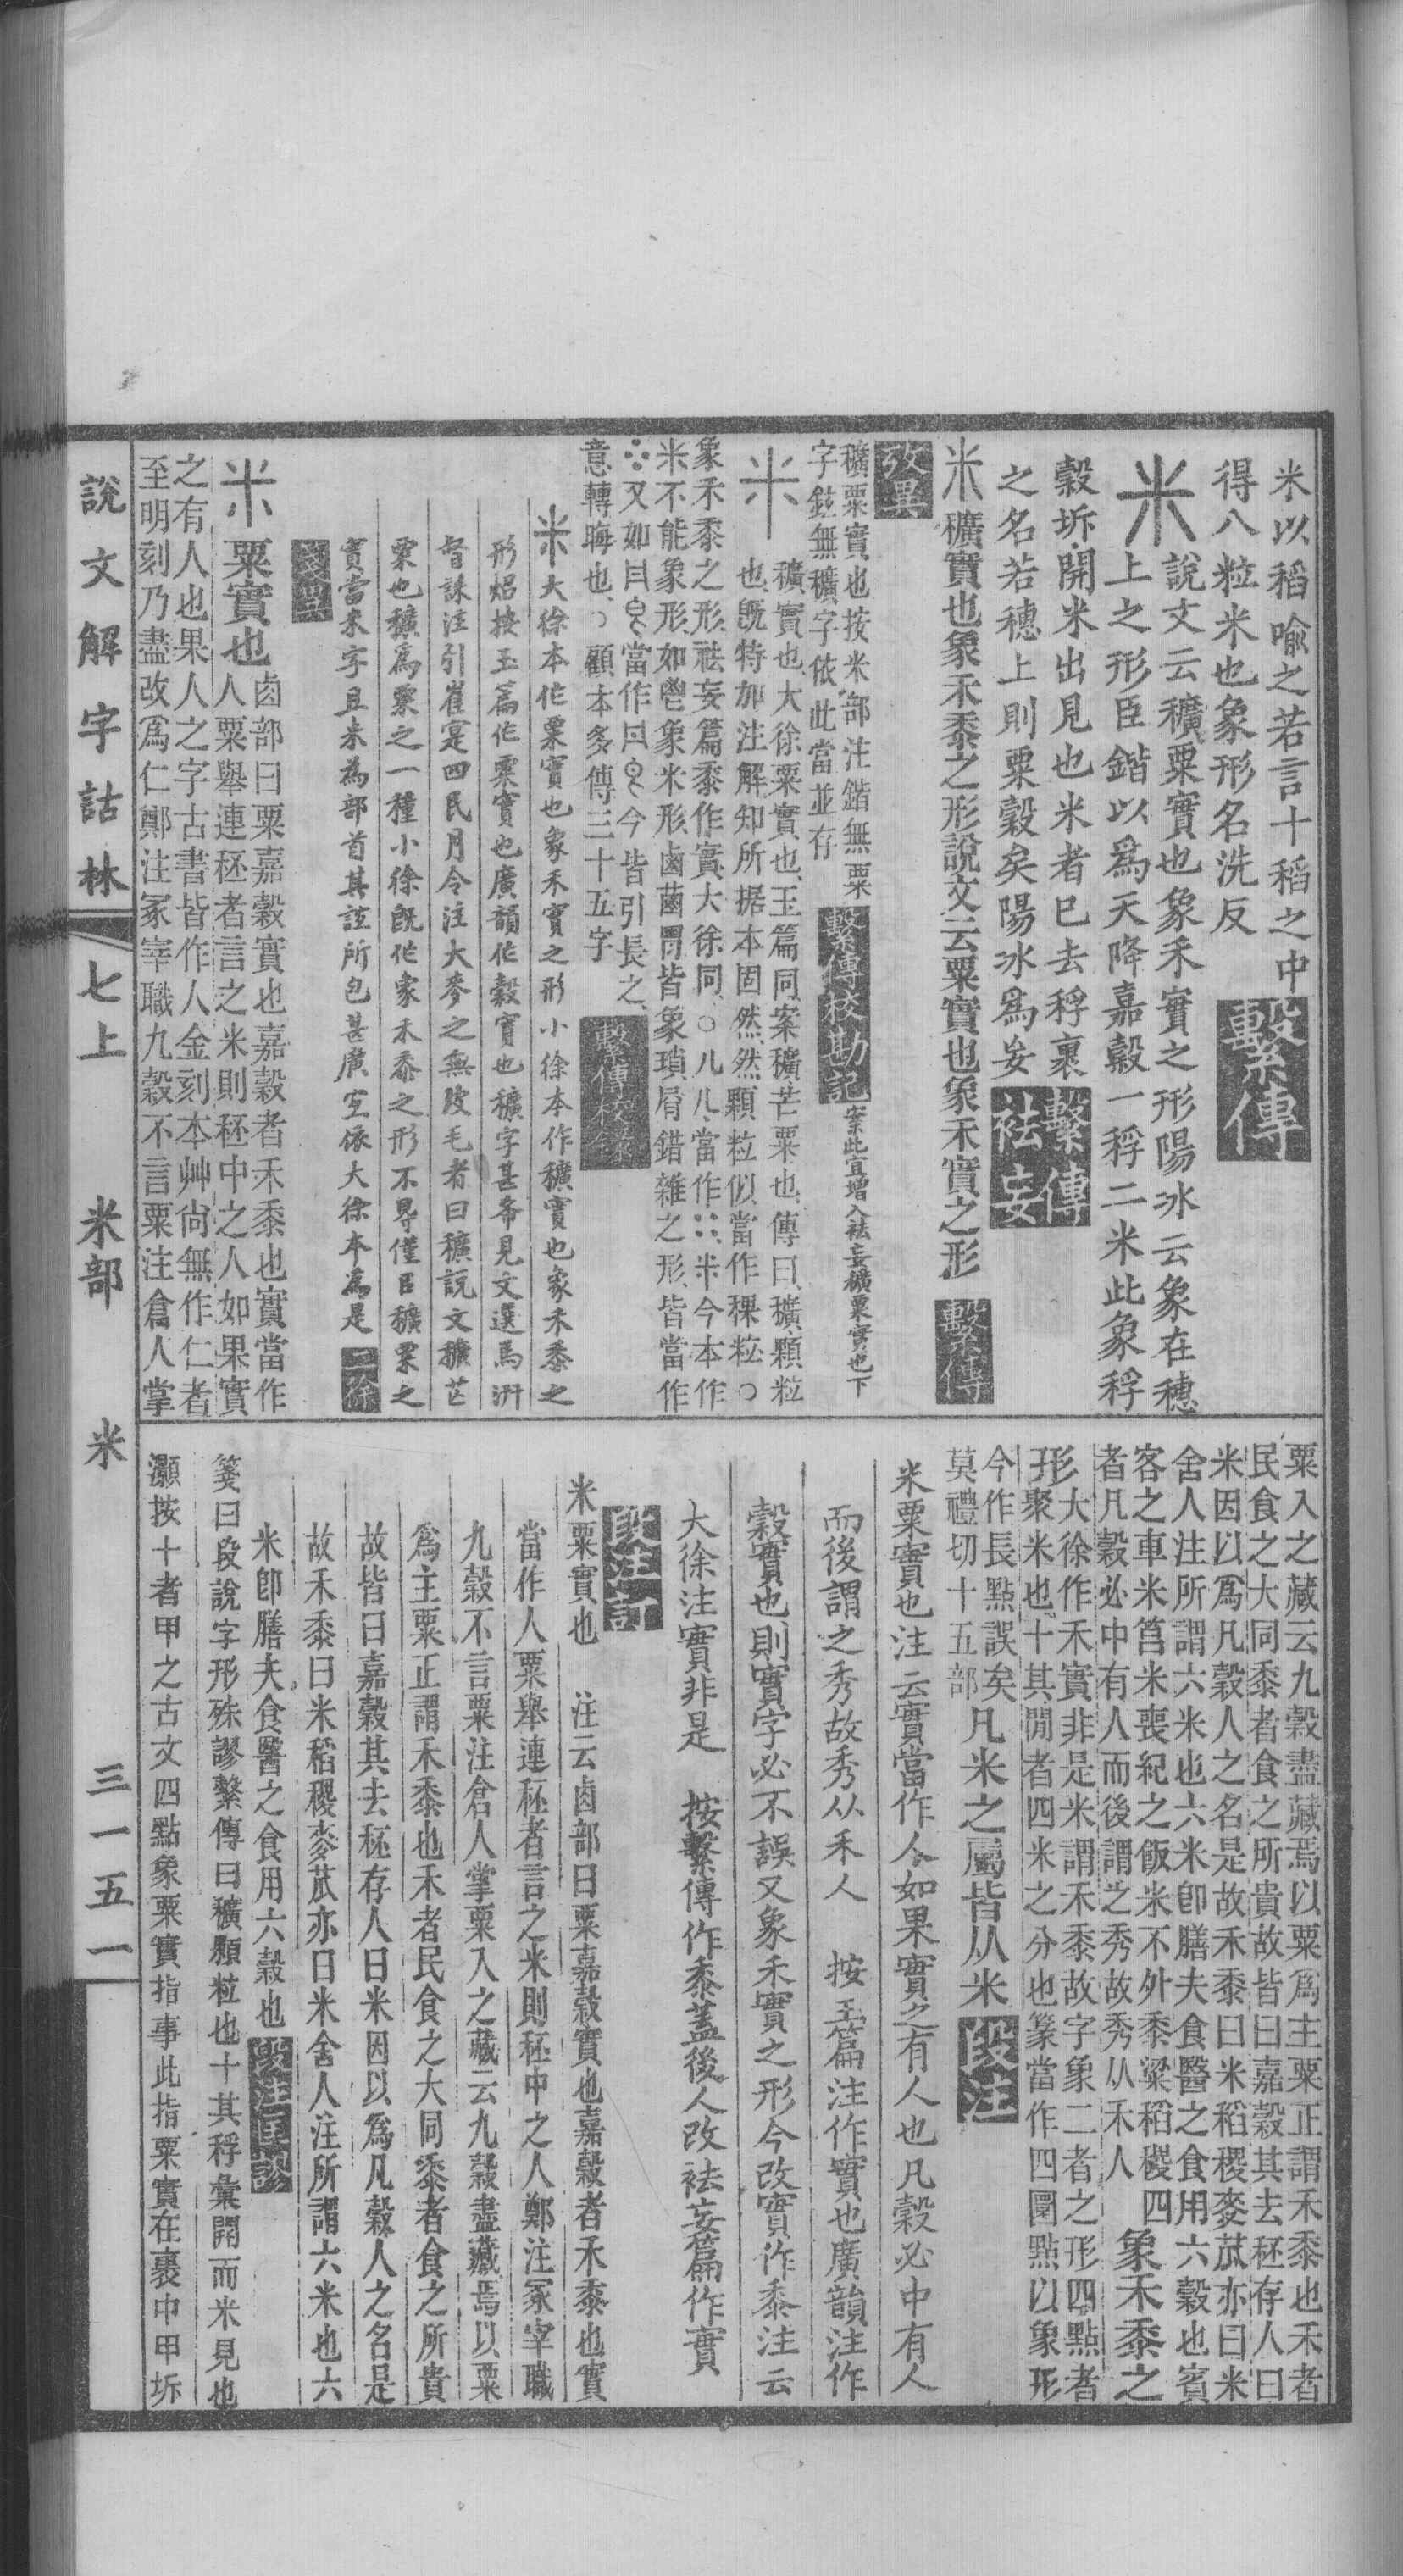 米以稻喩之若言十稻之中
得八粒米也象形名洗反
繫傳
米
說文云穬粟實也象禾實之形陽冰云象在穗
上之形臣鍇以爲天降嘉穀一稃二米此象稃
穀坼開米出見也米者已去稃裹
之名若穗上則粟穀矣陽冰爲妄
繫傳
袪妄
米穬實也象禾黍之形說文云粟實也象禾實之形
繫傳
攷異
穬粟實也按米部注鍇無粟
字鉉無穬字依此當並存
繫傳校勘記
案此宜增入袪妄穬粟實也下
米
穬實也大徐粟實也玉篇同案穬芒粟也傳曰穬顆粒
也旣特加注解知所据本固然然顆粒似當作稞粒○
象禾黍之形袪妄篇黍作實大徐同○八八當作米今本作
米不能象形如鬯象米形鹵𦳊胃皆象瑣屑錯雜之形皆當作
又如當作今皆引長之
意轉晦也○顧本多傳三十五字
繫傳校錄
米大徐本作粟實也象禾實之形小徐本作穬實也象禾黍之
形炤按玉篇作粟實也廣韻作穀實也穬字甚希見文選馬汧
督誄注引崔寔四民月令注大麥之無皮毛者曰穬說文穬芒
粟也穬爲粟之一種小徐旣作象禾黍之形不得僅目穬粟之
實當米字且米為部首其誼所包甚廣宐依大徐本爲是
二徐
箋異
米
粟實也
卤部曰粟嘉穀實也嘉穀者禾黍也實當作
人粟舉連秠者言之米則秠中之人如果實
之有人也果人之字古書皆作人金刻本艸尙無作仁者
至明刻乃盡改爲仁鄭注冢宰職九穀不言粟注倉人掌
粟入之藏云九穀盡藏焉以粟爲主粟正謂禾黍也禾者
民食之大同黍者食之所貴故皆曰嘉穀其去秠存人曰
米因以爲凡穀人之名是故禾黍曰米稻稷麥苽亦曰米
舍人注所謂六米也六米卽膳夫食醫之食用六穀也賓
客之車米筥米喪紀之飯米不外黍粱稻稷四
者凡穀必中有人而後謂之秀故秀从禾人
象禾黍之
形
大徐作禾實非是米謂禾黍故字象二者之形四點者
聚米也十其閒者四米之分也篆當作四圜點以象形
今作長點誤矣
莫禮切十五部
凡米之屬皆从米
段注
米粟實也注云實當作人如果實之有人也凡穀必中有人
而後謂之秀故秀从禾人　按玉篇注作實也廣韻注作
穀實也則實字必不誤又象禾實之形今改實作黍注云
大徐注實非是　按繫傳作黍蓋後人改袪妄篇作實
段注訂
米粟實也　注云卤部曰粟嘉穀實也嘉穀者禾黍也實
當作人粟舉連秠者言之米則秠中之人鄭注冢宰職
九穀不言粟注倉人掌粟入之藏云九穀盡藏焉以粟
爲主粟正謂禾黍也禾者民食之大同黍者食之所貴
故皆曰嘉穀其去秠存人曰米因以爲凡穀人之名是
故禾黍曰米稻稷麥苽亦曰米舍人注所謂六米也六
米卽膳夫食醫之食用六穀也
段注匡謬
箋曰段說字形殊謬繫傳曰穬顆粒也十其稃彙開而米見也
灝按十者甲之古文四點象粟實指事此指粟實在裹中甲坼
說文解字詁林　七上　米部　米　三一五一